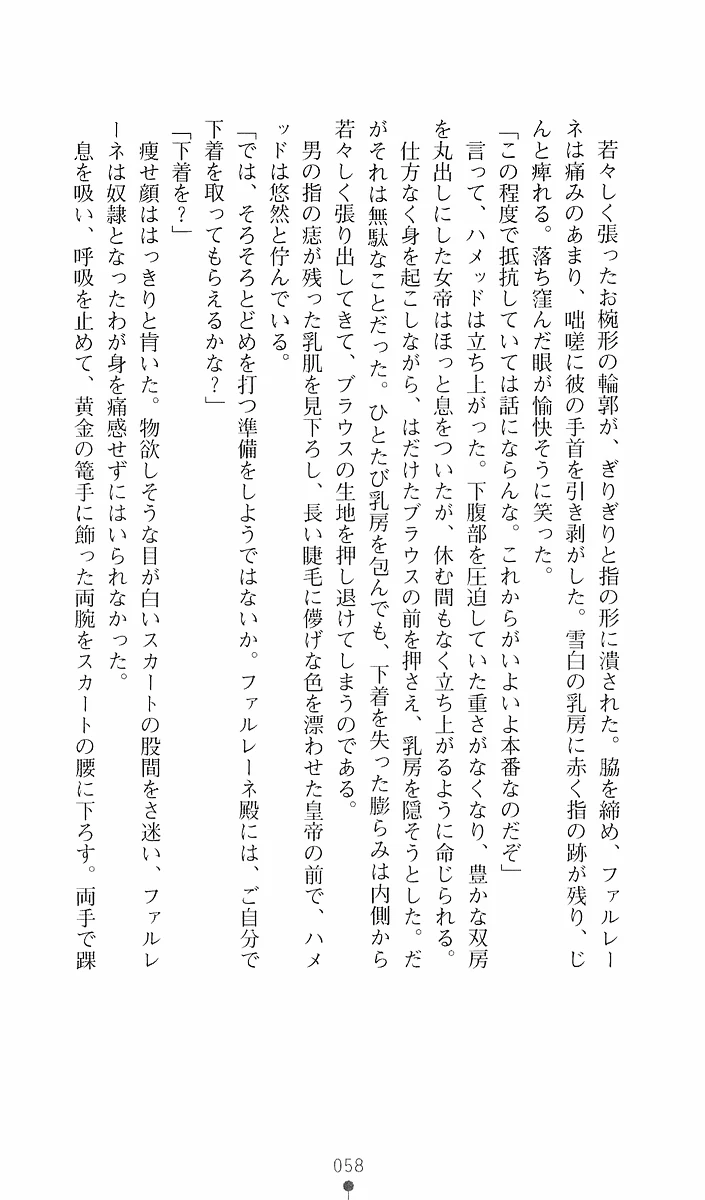 若々しく張ったお椀形の輪郭が、ぎりぎりと指の形に潰された。脇を締め、ファルレー
ネは痛みのあまり、咄嗟に彼の手首を引き剥がした。雪白の乳房に赤く指の跡が残り、じ
んと痺れる。落ち窪んだ眼が愉快そうに笑った。
「この程度で抵抗していては話にならんな。これからがいよいよ本番なのだぞ」
言って、ハメッドは立ち上がった。下腹部を圧迫していた重さがなくなり、豊かな双房
を丸出しにした女帝はほっと息をついたが、休む間もなく立ち上がるように命じられる。
仕方なく身を起こしながら、はだけたブラウスの前を押さえ、乳房を隠そうとした。だ
がそれは無駄なことだった。ひとたび乳房を包んでも、下着を失った膨らみは内側から
若々しく張り出してきて、ブラウスの生地を押し退けてしまうのである。
男の指の痣が残った乳肌を見下ろし、長い睫毛に儚げな色を漂わせた皇帝の前で、ハメ
ッドは悠然と佇んでいる。
「では、そろそろとどめを打つ準備をしようではないか。ファルレーネ殿には、ご自分で
下着を取ってもらえるかな？」
「下着を？」
痩せ顔ははっきりと肯いた。物欲しそうな目が白いスカートの股間をさ迷い、ファルレ
ーネは奴隷となったわが身を痛感せずにはいられなかった。
息を吸い、呼吸を止めて、黄金の篭手に飾った両腕をスカートの腰に下ろす。両手で踝
058